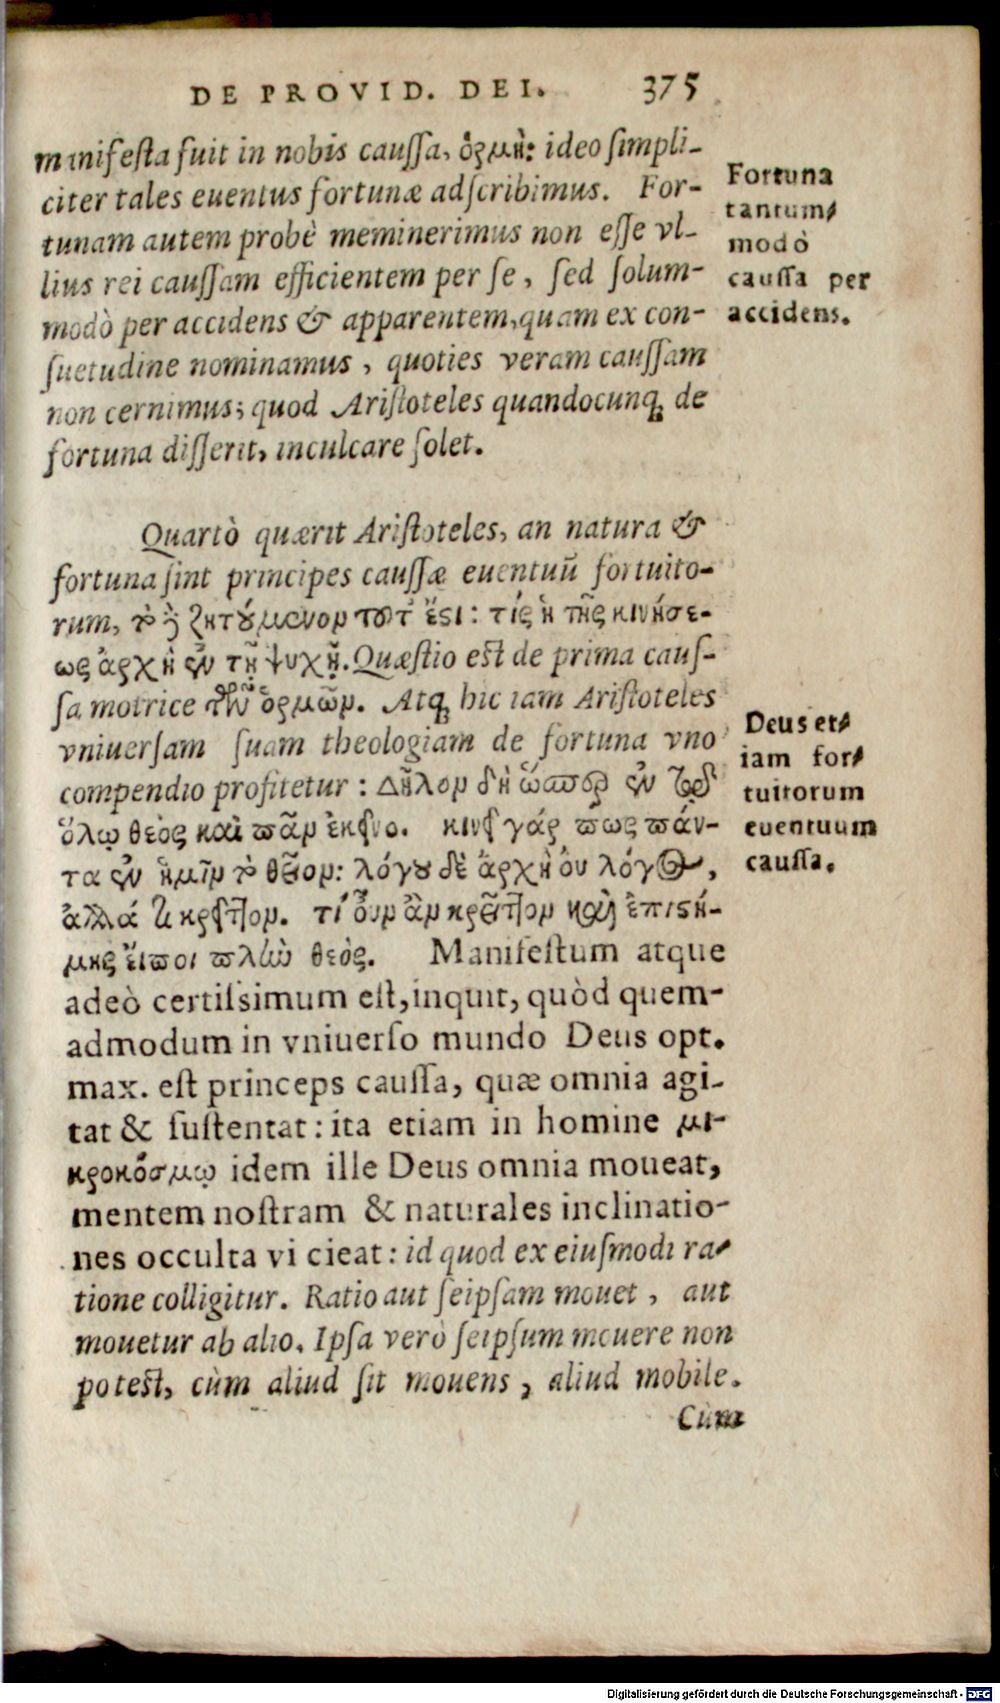 DE PROVID. DEI. 375
manifesta fuit in nobis caussa, ὁρμὴ: ideo simpli-
citer tales euentus fortunæ adscribimus. For-
tunam autem probè meminerimus non esse vl-
lius rei caussam efficientem per se, sed solum-
modò per accidens & apparentem, quam ex con-
suetudine nominamus, quoties veram caussam
non cernimus; quod Aristoteles quandocunq; de
fortuna disserit, inculcare solet.
Fortuna
tantum-
modò
caussa per
accidens.
Quartò quærit Aristoteles, an natura &
fortuna sint principes caussæ euentuū fortuito-
rum, τὸ δὲ ζητούμενον τοῦτ' ἔστι: τίς ἡ τῆς κινήσε-
ως ἀρχὴ ἐν τῇ ψυχῇ. Quæstio est de prima caus-
sa motrice τῶν ὁρμῶν. Atq; hic iam Aristoteles
vniuersam suam theologiam de fortuna vno
compendio profitetur: Δῆλον δὴ ὥσπερ ἐν τῷ
ὅλῳ θεὸς καὶ πᾶν ἐκείνο. κινεῖ γάρ πως πάν-
τα ἐν ἡμῖν τὸ θεῖον: λόγου δὲ ἀρχὴ ὀυ λόγος,
ἀλλά τι κρεῖττον. τί ὀῦν ἂν κρεῖττον καὶ ἐπιστή-
μης ἔιποι πλὴν θεὸς. Manifestum atque
adeò certissimum est, inquit, quòd quem-
admodum in vniuerso mundo Deus opt.
max. est princeps caussa, quæ omnia agi-
tat & sustentat: ita etiam in homine μι-
κροκόσμῳ idem ille Deus omnia moueat,
mentem nostram & naturales inclinatio-
nes occulta vi cieat: id quod ex eiusmodi ra-
tione colligitur. Ratio aut seipsam mouet, aut
mouetur ab alio. Ipsa verò seipsum mouere non
potest, cùm aliud sit mouens, aliud mobile.
Cùm
Deus et-
iam for-
tuitorum
euentuum
caussa.
Digitalisierung gefördert durch die Deutsche Forschungsgemeinschaft - DFG